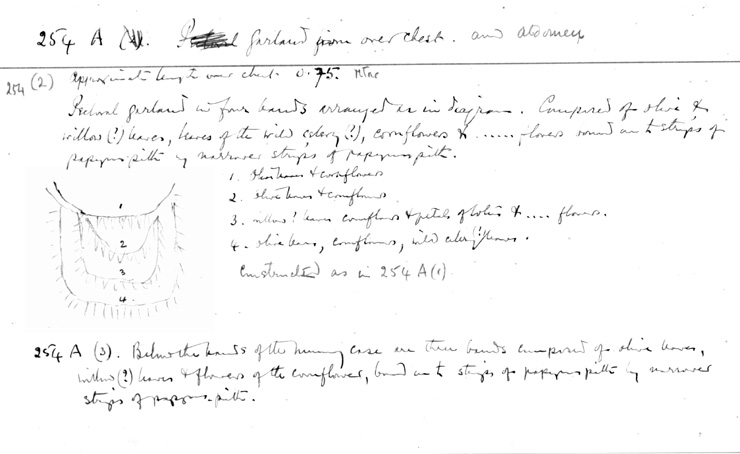 254 A (2). Pectoral garland from over chest. and abdomen
254 (2) Approximate length over chest 0.75. Mtre
Pectoral garland in four bands arranged as in diagram. Composed of olive &
willow (?) leaves, leaves of the wild celery (?), cornflowers & ...... flowers round on to strips of
papyrus pith by narrower strips of papyrus pith.
1. Olive leaves & cornflowers
2. Olive leaves & cornflowers
3. willow? leaves cornflowers & petals of lotus & .... flowers.
4. olive leaves, cornflowers, wild celery (?) leaves.
Constructed as in 254 A (1)
1
2
3
4.
254 A (3). Below the hands of the mummy case are three bands composed of olive leaves,
willow (?) leaves & flowers of the cornflower, bound on to strips of papyrus pith by narrower
strips of papyrus-pith.